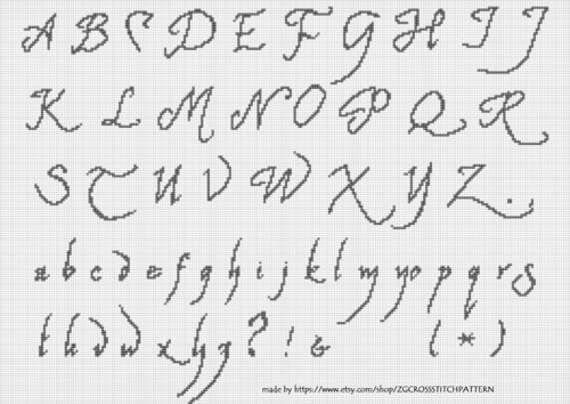 A B C D E F G H I J
K L M N O P Q R
S T U V W X Y Z .
a b c d e f g h i j k l m n o p q r s
t u v w x y z ? ! & ( * )
made by https://www.etsy.com/shop/ZGCROSSSTITCHPATTERN